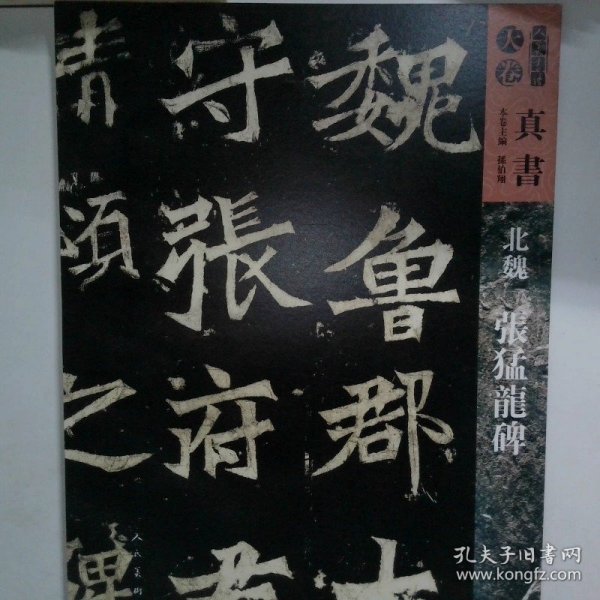 魏魯郡太
守張府君
清頌之碑
人民美術
天卷
真書
本卷主編 孫伯翔
北魏 張猛龍碑
孔夫子旧书网
www.kongfz.com